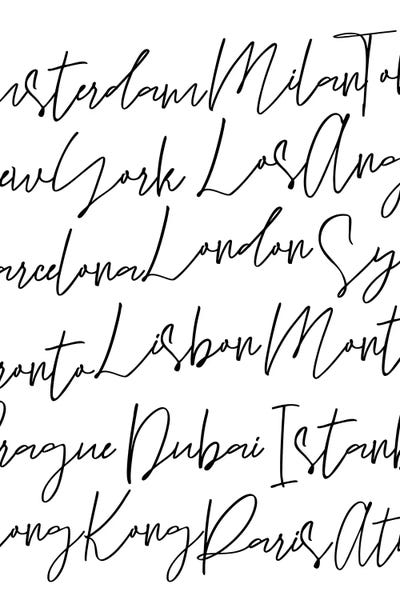 msterdam Milan To
ewYork LosAng
arcelona London Sy
ronto Lisbon Mont
rague Dubai Istanb
ongKong Paris Ath